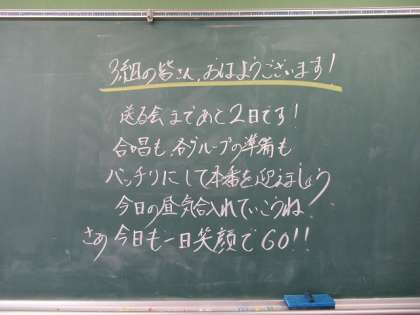 3組の皆さん、おはようございます!
送る会まであと2日です!
合唱も、各グループの準備も
バッチリにして本番を迎えましょう
今日の昼気合入れていこうね!
さあ今日も一日笑顔でGO!!